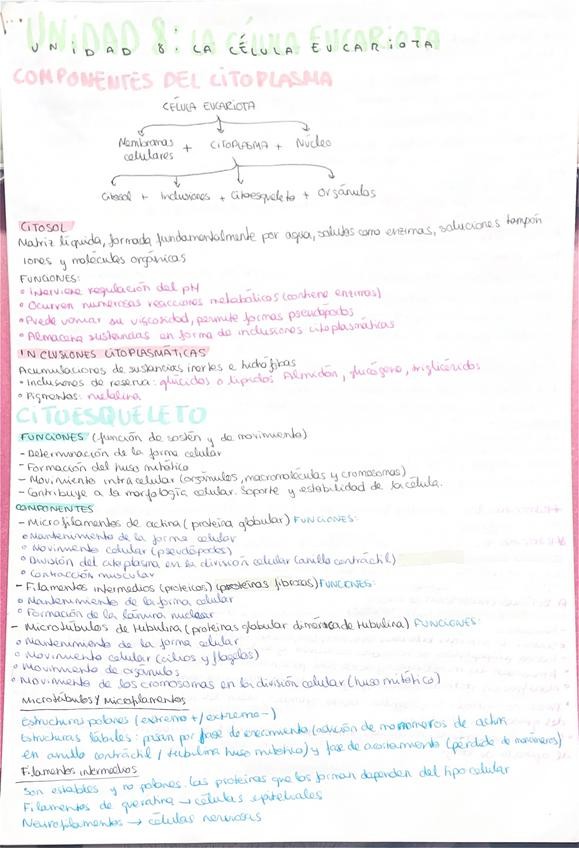 UNIDAD 8: LA CÉLULA EUCARIOTA
COMPONENTES DEL CITOPLASMA
CÉLULA EUCARIOTA
Membranas celulares + CITOPLASMA + Núcleo
Citosol + Inclusiones + Citoesqueleto + Orgánulos
CITOSOL
Matriz líquida, formada fundamentalmente por agua, solutos como enzimas, soluciones tampón
iones y moléculas orgánicas
FUNCIONES:
• Interviene regulación del pH
• Ocurren numerosas reacciones metabólicas (contiene enzimas)
• Puede variar su viscosidad, permite formas pseudópodos
• Almacena sustancias en forma de inclusiones citoplasmáticas
INCLUSIONES CITOPLASMÁTICAS
Acumulaciones de sustancias inertes e hidrófobas
• Inclusiones de reserva: glúcidos o lípidos Almidón, glucógeno, triglicéridos
• Pigmentos: melanina
CITOESQUELETO
FUNCIONES (función de sostén y de movimiento)
- Determinación de la forma celular
- Formación del huso mitótico
- Movimiento intracelular (orgánulos, macromoléculas y cromosomas)
- Contribuye a la morfología celular. Soporte y estabilidad de la célula.
COMPONENTES
- Microfilamentos de actina (proteína globular) FUNCIONES:
• Mantenimiento de la forma celular
• Movimiento celular (pseudópodos)
• División del citoplasma en la división celular (anillo contráctil)
• Contracción muscular
- Filamentos intermedios (proteicos) (proteínas fibrosas) FUNCIONES:
• Mantenimiento de la forma celular
• Formación de la lámina nuclear
- Microtúbulos de tubulina (proteínas globular dimérica de tubulina) FUNCIONES:
• Mantenimiento de la forma celular
• Movimiento celular (cilios y flagelos)
• Movimiento de orgánulos
• Movimiento de los cromosomas en la división celular (huso mitótico)
Microtúbulos y Microfilamentos
Estructuras polares (extremo + / extremo -)
Estructuras lábiles: pasan por fase de crecimiento (adición de monómeros de actina
en anillo contráctil / tubulina huso mitótico) y fase de acortamiento (pérdida de monómeros)
Filamentos intermedios
Son estables y no polares. Las proteínas que los forman dependen del tipo celular
Filamentos de queratina → células epiteliales
Neurofilamentos → células nerviosas